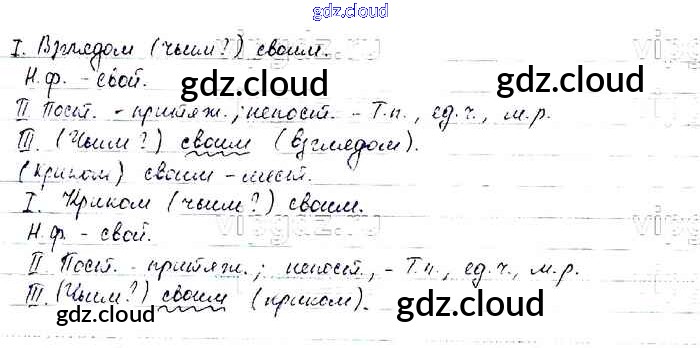 gdz.cloud
I. Взглядом (чьим?) своим.
Н.ф. - свой.
gdz.cloud
gdz.cloud
II Пост. - притяж.; непост. - Т.п., ед.ч., м.р.
III. (Чьим?) своим (взглядом).
(Криком) своим - мест.
I. Криком (чьим?) своим.
Н.ф - свой.
gdz.cloud
gdz.cloud
II Пост. - притяж.; непост, - Т.п., ед.ч., м.р.
III. (Чьим?) своим (криком).
gdz.cloud
gdz.cloud